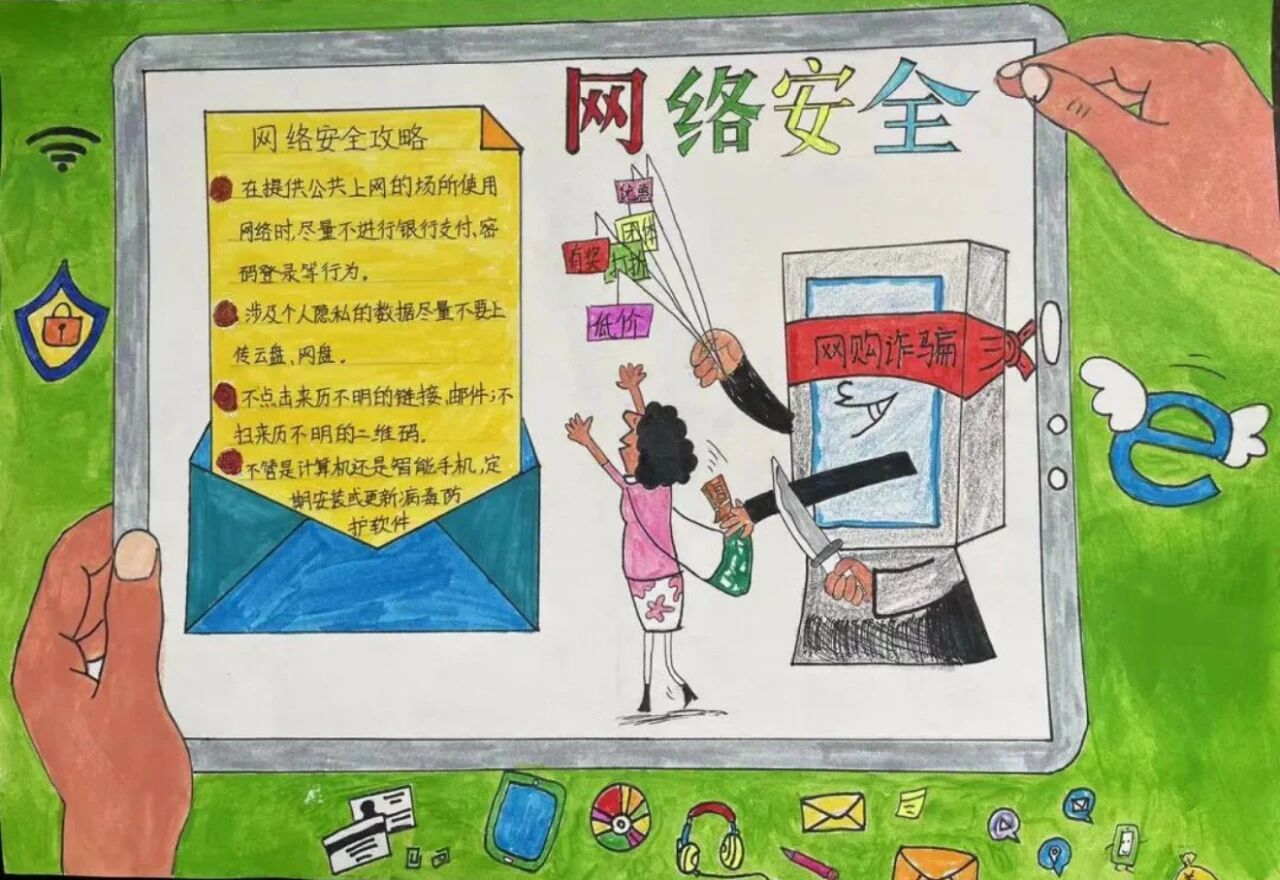 网络安全
网络安全攻略
在提供公共上网的场所使用
网络时,尽量不进行银行支付、密
码登录等行为。
涉及个人隐私的数据尽量不要上
传云盘、网盘。
不点击来历不明的链接、邮件;不
扫来历不明的二维码。
不管是计算机还是智能手机,定
期安装或更新病毒防
护软件
优惠
团体
有奖
打折
低价
网购诈骗
e